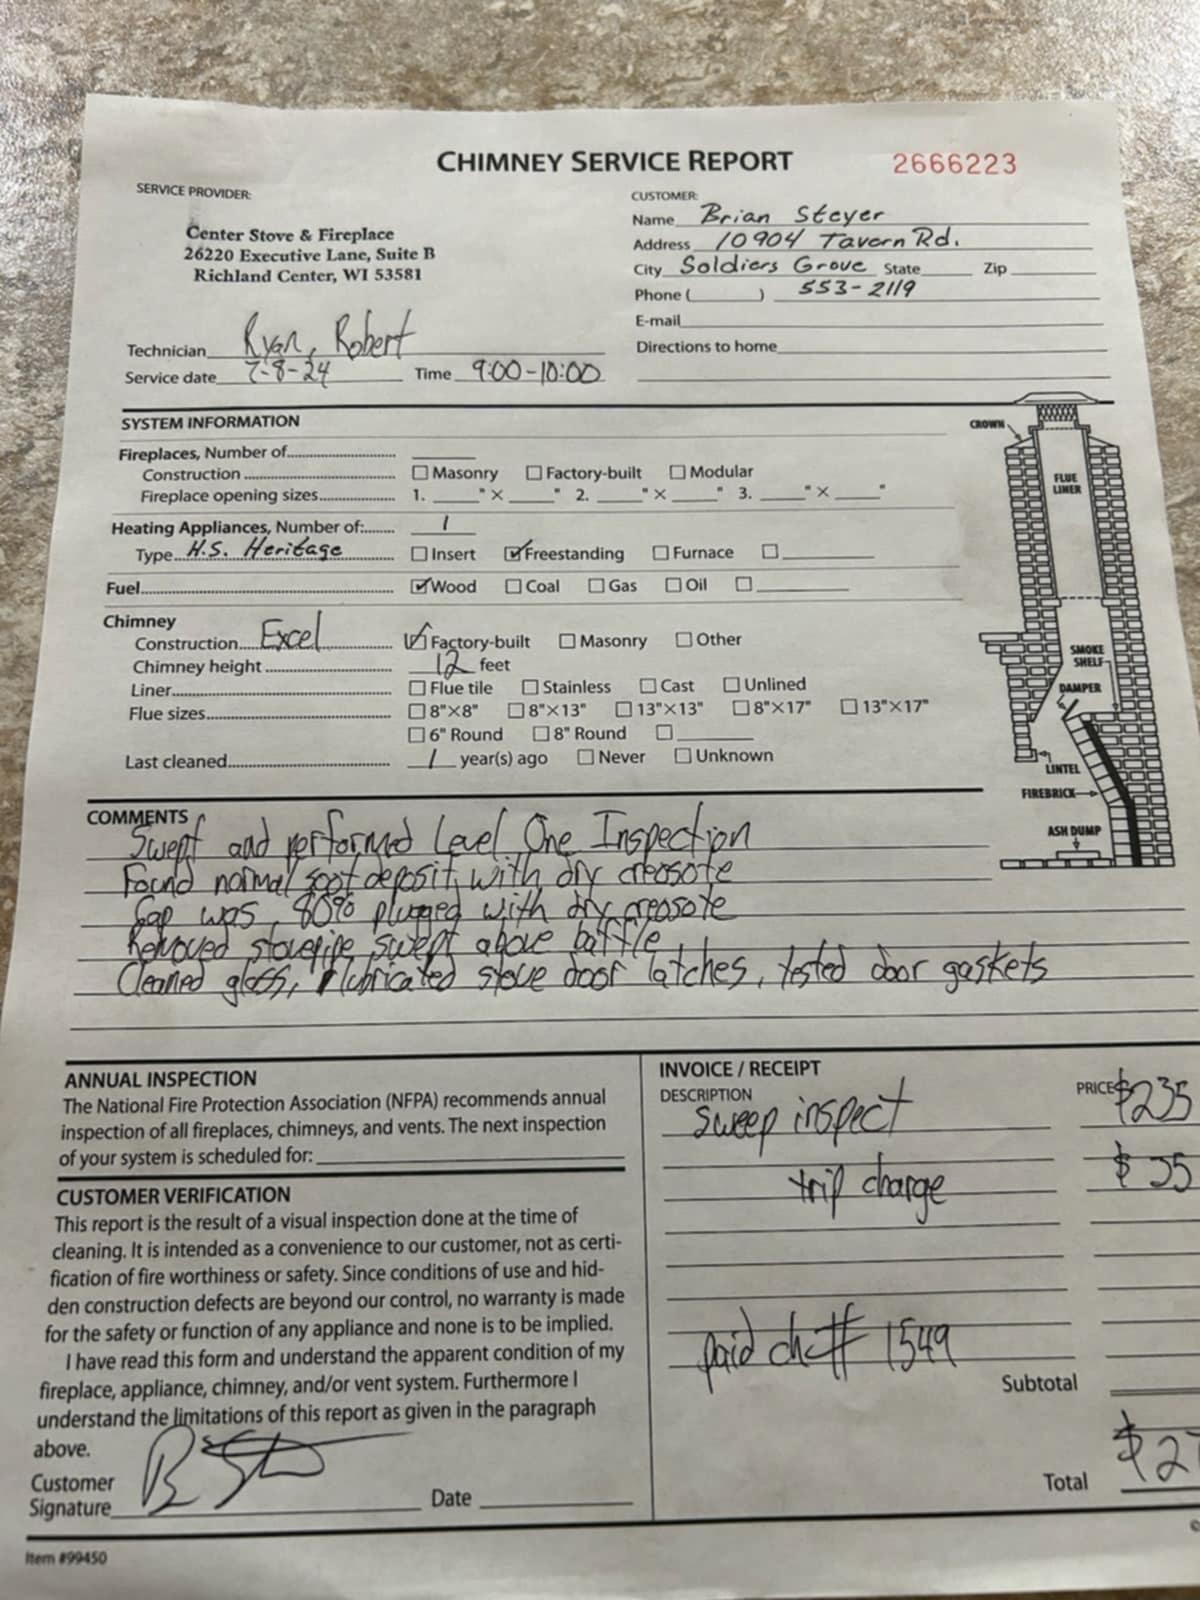 CHIMNEY SERVICE REPORT 2666223
SERVICE PROVIDER:
Center Stove & Fireplace
26220 Executive Lane, Suite B
Richland Center, WI 53581
CUSTOMER:
Name Brian Steyer
Address 10904 Tavern Rd.
City Soldiers Grove State Zip
Phone ( ) 553-2119
E-mail
Directions to home
Technician Ryan, Robert
Service date 7-8-24 Time 9:00-10:00
SYSTEM INFORMATION
Fireplaces, Number of
Construction Masonry Factory-built Modular
Fireplace opening sizes 1. " × " 2. " × " 3. " × "
Heating Appliances, Number of: 1
Type H.S. Heritage Insert Freestanding Furnace
Fuel Wood Coal Gas Oil
Chimney
Construction Excel Factory-built Masonry Other
Chimney height 12 feet
Liner Flue tile Stainless Cast Unlined
Flue sizes 8"×8" 8"×13" 13"×13" 8"×17" 13"×17"
6" Round 8" Round
Last cleaned 1 year(s) ago Never Unknown
CROWN
FLUE
LINER
SMOKE
SHELF
DAMPER
LINTEL
FIREBRICK
ASH DUMP
COMMENTS
Swept and performed Level One Inspection
Found normal soot deposit with dry creosote
Cap was 80% plugged with dry creosote
Removed stovepipe, swept above baffle
Cleaned glass, lubricated stove door latches, tested door gaskets
ANNUAL INSPECTION
The National Fire Protection Association (NFPA) recommends annual
inspection of all fireplaces, chimneys, and vents. The next inspection
of your system is scheduled for:
CUSTOMER VERIFICATION
This report is the result of a visual inspection done at the time of
cleaning. It is intended as a convenience to our customer, not as certi-
fication of fire worthiness or safety. Since conditions of use and hid-
den construction defects are beyond our control, no warranty is made
for the safety or function of any appliance and none is to be implied.
I have read this form and understand the apparent condition of my
fireplace, appliance, chimney, and/or vent system. Furthermore I
understand the limitations of this report as given in the paragraph
above.
Customer
Signature Date
Item #99450
INVOICE / RECEIPT
DESCRIPTION PRICE
sweep inspect $235
trip charge $35
paid ch# 1549
Subtotal
Total $27
©